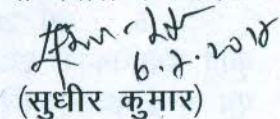 6.2.2018
(सुधीर कुमार)